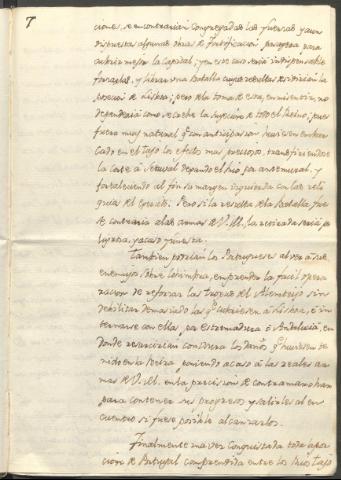 7
ciones, se encontrarian congregadas las fuerzas y aun
dispuestas algunas obras de fortificacion pasagera para
cubrir mejor la Capital; y en ese caso sería indispensable
forzarlas, y librar una batalla cuyas resultas decidirian la
posesion de Lisboa; pero de la toma de esta, en mi sentir, no
dependeria como se cree la sugecion de todo el Reino; pues
fuera muy natural qe con anticipacion hubiesen embar
cado en el Tajo los efectos mas preciosos, transfiriendose
la Corte á Setuval dejando el Rio por antemural, y
fortaleciendo al fin su margen izquierda con las reli
quias del Exercito. Pero si la resulta de la batalla fue
se contraria a las armas de V.M., la retirada sería pe
ligrosa, y acaso funesta.
Tambien podrian los Portugueses al ver á sus
enemigos sobre Coimbra, emprender la facil opera
racion de reforzar las tropas del Alentejo sin
debilitar demasiado las qe cubriesen á Lisboa, é in
ternarse con ellas por Estremadura ó Andalucia, en
donde resarcirian con usura los daños qe hubiesen te
nido en la Beira, poniendo acaso á las reales ar
mas de V.M. en la precision de contramarchar
para contener sus progresos y salirles al en
cuentro si fuese posible alcanzarlos.
Finalmente una vez conquistada toda la por
cion de Portugal comprendida entre los Rios Tajo